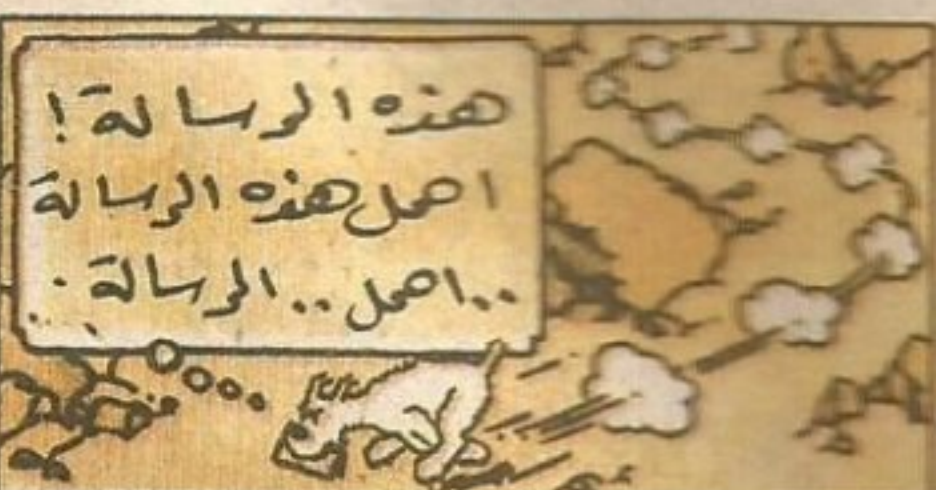 هذه الرسالة !
احمل هذه الرسالة
..احمل .. الرسالة .